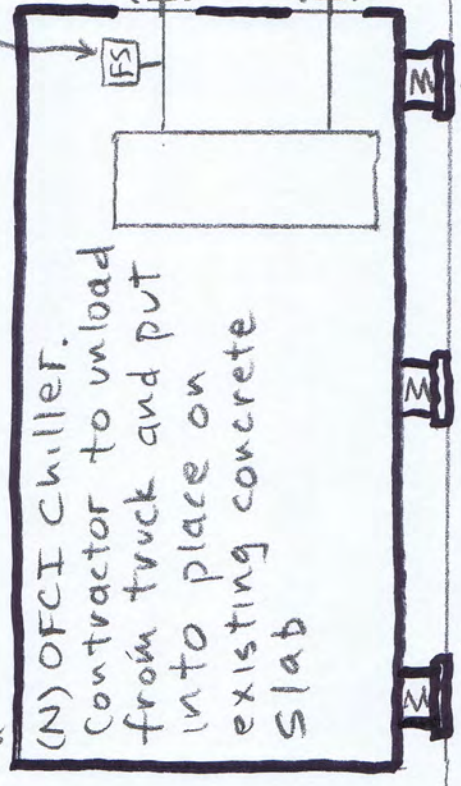 (N) OFCI Chiller.
Contractor to unload
from truck and put
into place on
existing concrete
Slab
FS